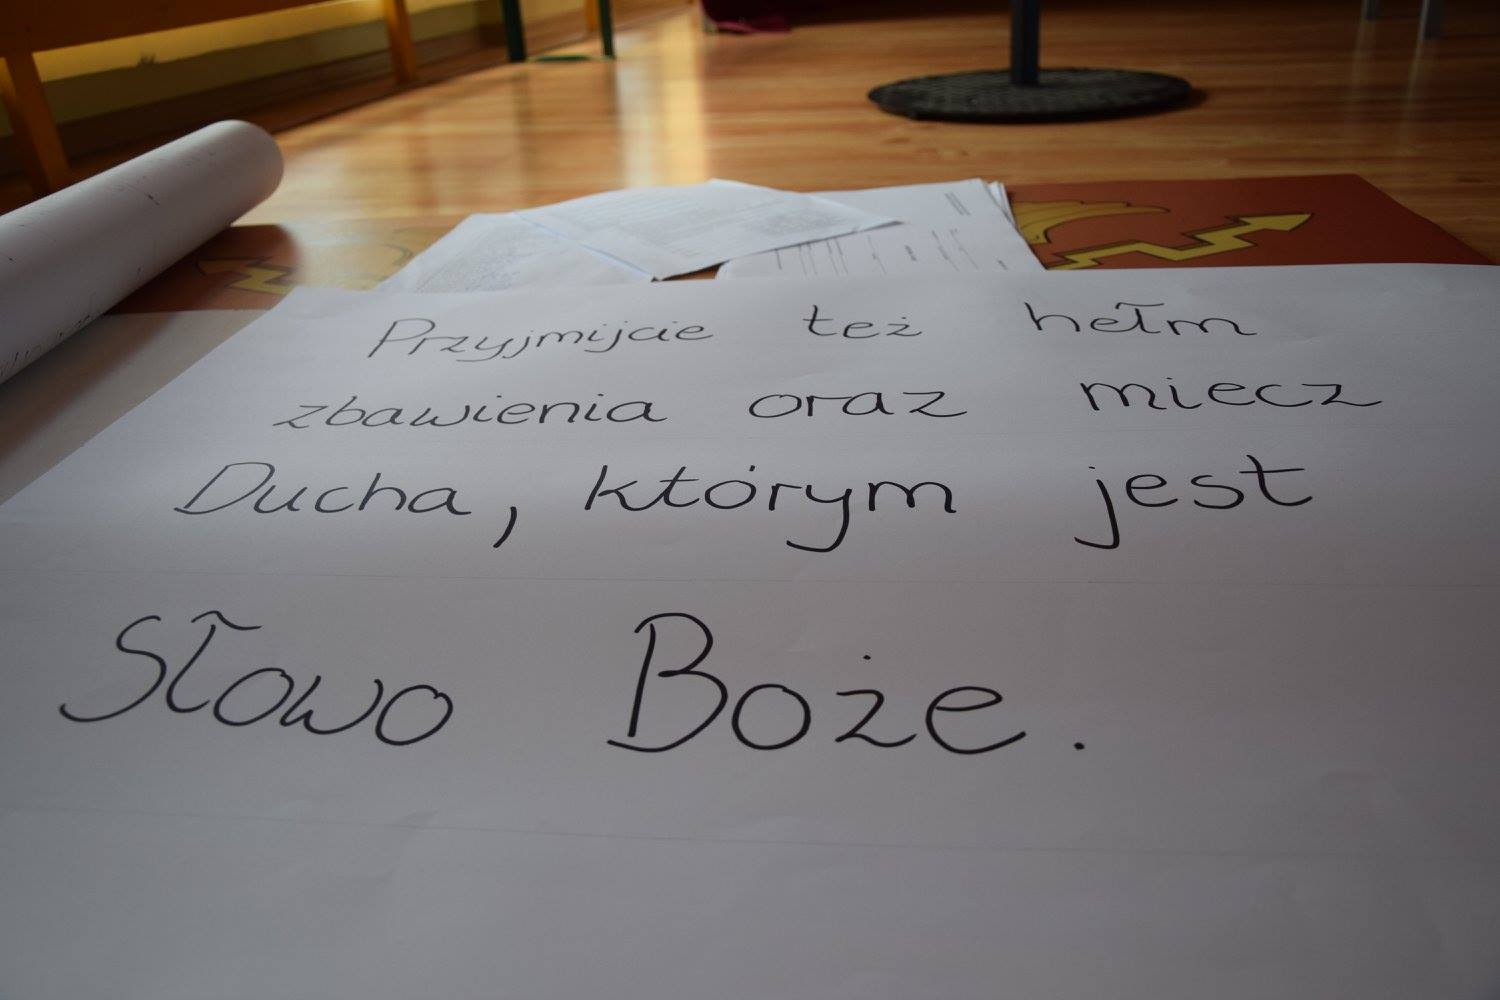 Przyjmijcie też hełm
zbawienia oraz miecz
Ducha, którym jest
Słowo Boże.